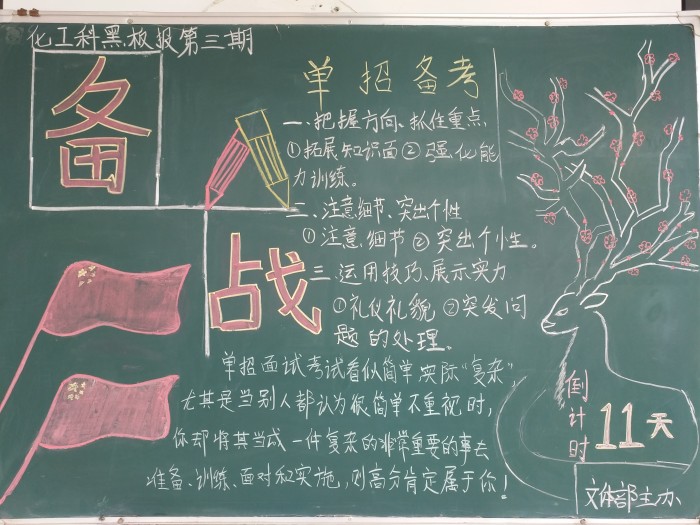 化工科黑板报第三期
备
战
单招备考
一、把握方向、抓住重点
①拓展知识面②强化能
力训练。
二、注意细节、突出个性
①注意细节②突出个性。
三、运用技巧、展示实力
①礼仪礼貌②突发问
题的处理。
单招面试考试看似简单实际“复杂”,
尤其是当别人都认为很简单不重视时,
你却将其当成一件复杂的非常重要的事去
准备、训练、面对和实施,则高分肯定属于你!
倒计时
11天
文体部主办